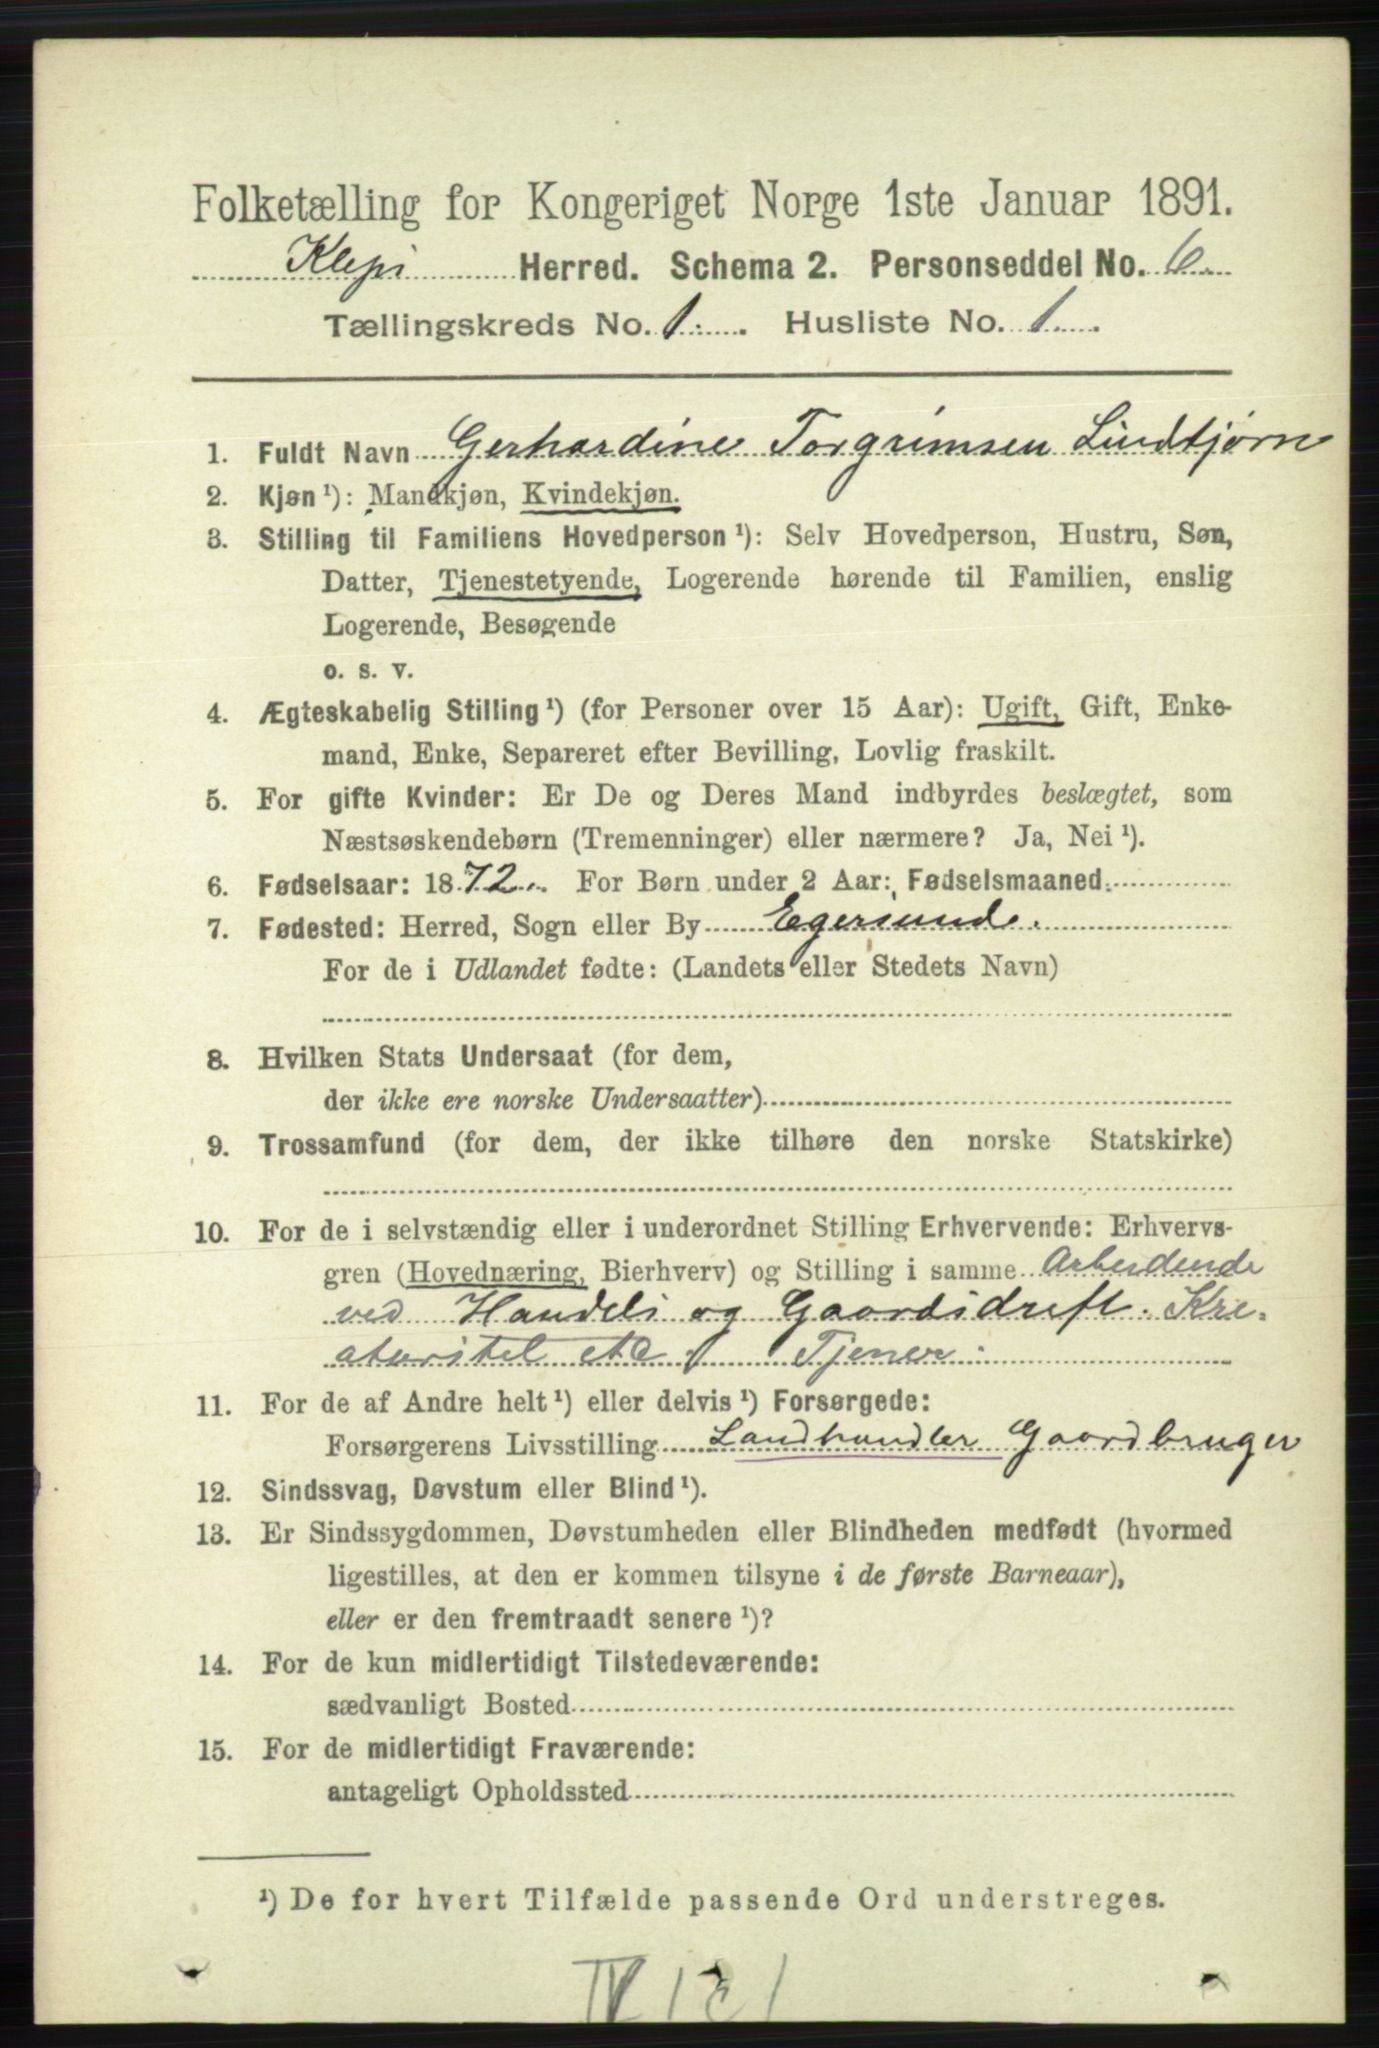 Folketælling for Kongeriget Norge 1ste Januar 1891.
Klepp Herred. Schema 2. Personseddel No. 6
Tællingskreds No. 1. Husliste No. 1
1. Fuldt Navn Gerhardine Torgrimsen Lindtjørn
2. Kjøn ¹): Mandkjøn, Kvindekjøn.
3. Stilling til Familiens Hovedperson ¹): Selv Hovedperson, Hustru, Søn,
Datter, Tjenestetyende, Logerende hørende til Familien, enslig
Logerende, Besøgende
o. s. v.
4. Ægteskabelig Stilling ¹) (for Personer over 15 Aar): Ugift, Gift, Enke-
mand, Enke, Separeret efter Bevilling, Lovlig fraskilt.
5. For gifte Kvinder: Er De og Deres Mand indbyrdes beslægtet, som
Næstsøskendebørn (Tremenninger) eller nærmere? Ja, Nei ¹).
6. Fødselsaar: 1872. For Børn under 2 Aar: Fødselsmaaned
7. Fødested: Herred, Sogn eller By Egersund.
For de i Udlandet fødte: (Landets eller Stedets Navn)
8. Hvilken Stats Undersaat (for dem,
der ikke ere norske Undersaatter)
9. Trossamfund (for dem, der ikke tilhøre den norske Statskirke)
10. For de i selvstændig eller i underordnet Stilling Erhvervende: Erhvervs-
gren (Hovednæring, Bierhverv) og Stilling i samme Arbeidende
ved Handels og Gaardsdrift. Kre-
aturstel etc Tjener.
11. For de af Andre helt ¹) eller delvis ¹) Forsørgede:
Forsørgerens Livsstilling Landhandler Gaardbruger
12. Sindssvag, Døvstum eller Blind ¹).
13. Er Sindssygdommen, Døvstumheden eller Blindheden medfødt (hvormed
ligestilles, at den er kommen tilsyne i de første Barneaar),
eller er den fremtraadt senere ¹)?
14. For de kun midlertidigt Tilstedeværende:
sædvanligt Bosted
15. For de midlertidigt Fraværende:
antageligt Opholdssted
¹) De for hvert Tilfælde passende Ord understreges.